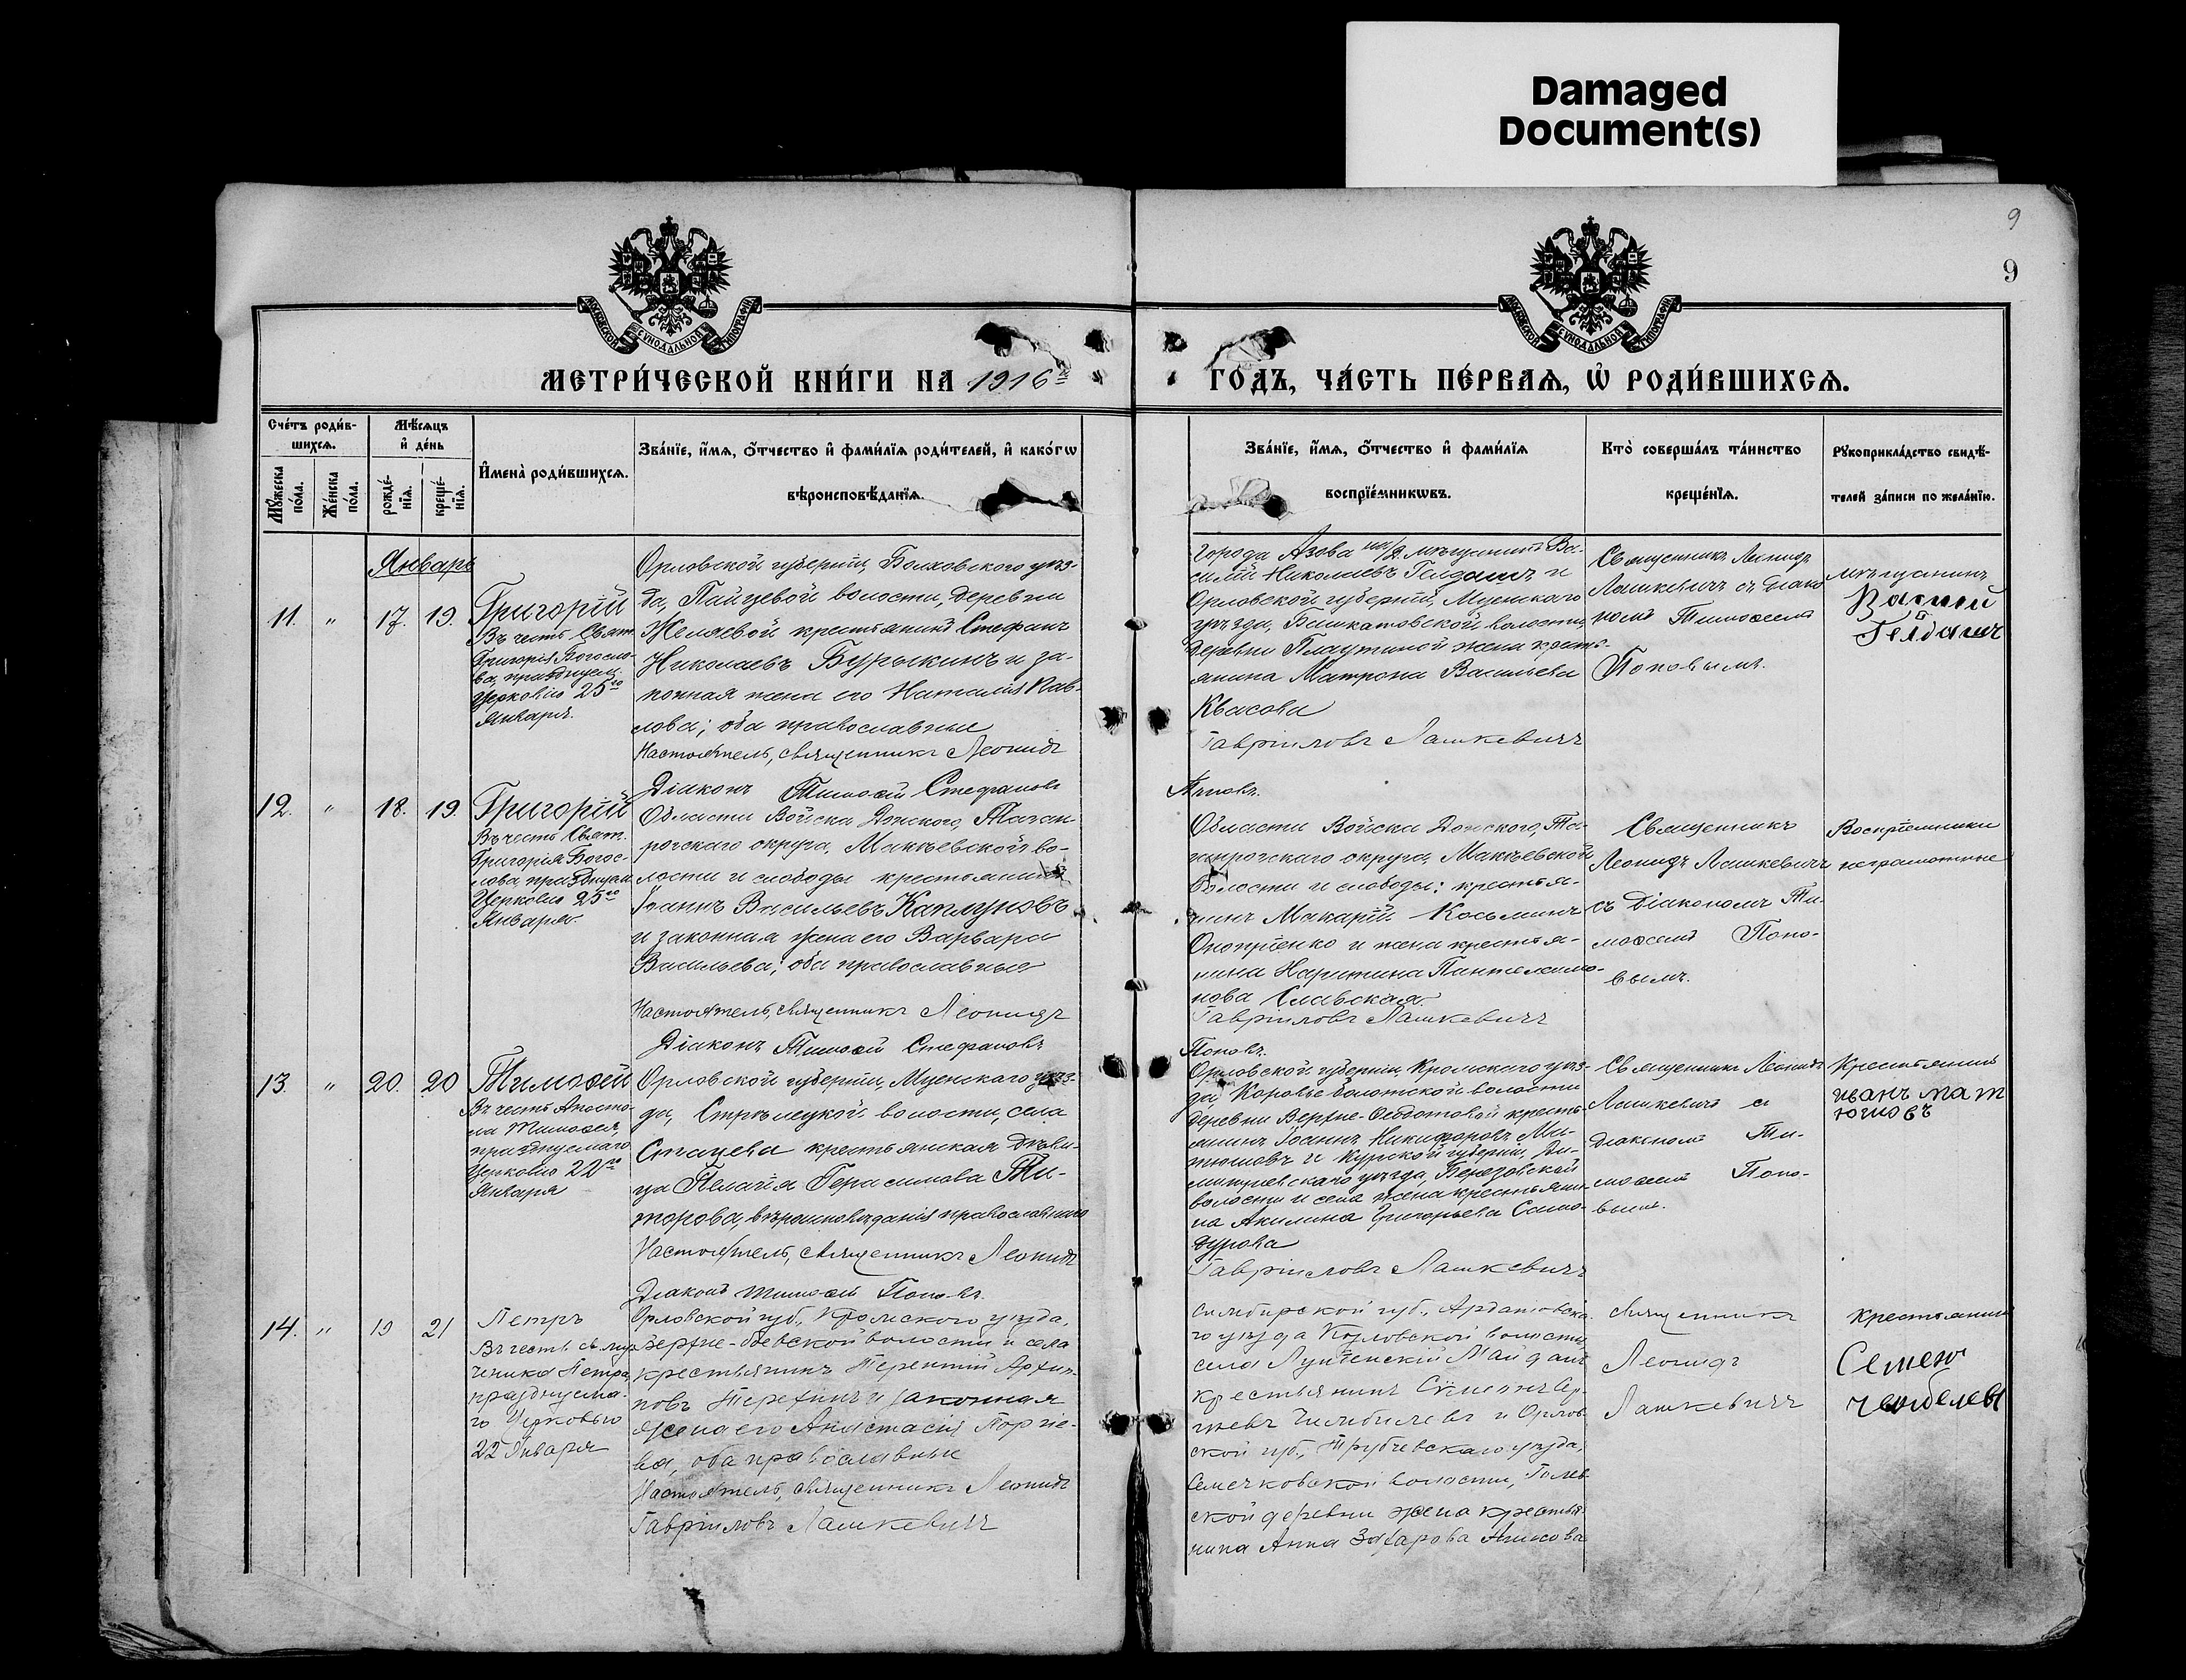 Damaged
Document(s)
9
9
МОСКОВСКОЙ СУНОДАЛЬНОЙ ТИПОГРАФІИ
МОСКОВСКОЙ СУНОДАЛЬНОЙ ТИПОГРАФІИ
МЕТРИ́ЧЕСКОЙ КНИ́ГИ НА 1916й
ГО́ДЪ, ЧА́СТЬ ПЕ́РВАѦ, Ѡ҆ РОДИ́ВШИХСѦ.
Сче́тъ роди́в-
шихсѧ.
Мꙋ́жеска
по́ла.
Же́нска
по́ла.
Мѣ́сѧцъ
и҆ де́нь
рожде́-
нїѧ.
креще́-
нїѧ.
И҆мена̀ роди́вшихсѧ.
Зва́нїе, и҆́мѧ, ѻ҆́тчество и҆ фами́лїѧ роди́телей, и҆ како́гѡ
вѣроисповѣ́данїѧ.
Зва́нїе, и҆́мѧ, ѻ҆́тчество и҆ фами́лїѧ
воспрїе́мникѡвъ.
Кто̀ соверша́лъ та́инство
креще́нїѧ.
Рꙋкоприкла́дство свидѣ́-
телей за́писи по жела́нїю.
Январь
11.
"
17.
19.
Григорій
Въ честь Свят.
Григорія Богосло-
ва, празднуем.
Церковію 25го
Января.
Орловской губерніи, Болховского уѣз-
да, Пайцевой волости, деревни
Желяевой крестьянинъ Стефанъ
Николаевъ Бурыкинъ и за-
конная жена его Наталія Пав-
лова; оба православные
Настоятель, священникъ Леонидъ
Діаконъ Тимоѳей Стефановъ
Города Азова на/Д. мѣщанинъ Ва-
силій Николаевъ Гейдашъ и
Орловской губерніи, Мценскаго
уѣзда, Башкатовской волости,
деревни Плаутиной жена кресть-
янина Матрона Васильева
Квасова
Гавріиловъ Лашкевичъ
Поповъ.
Священникъ Леонидъ
Лашкевичъ съ діако
номъ Тимоѳеемъ
Поповымъ.
мѣщанинъ
Василій
Гейдашъ
12.
"
18.
19.
Григорій
Въ честь Свят.
Григорія Богос-
лова, празднуем.
Церковію 25го
Января.
Области Войска Донского, Таган-
рогскаго округа, Макѣевской во-
лости и слободы крестьянинъ
Іоаннъ Васильевъ Каплуновъ
и законная жена его Варвара
Васильева; оба православные
Настоятель, священникъ Леонидъ
Діаконъ Тимоѳей Стефановъ
Области Войска Донского, Та-
ганрогскаго округа, Макѣевской
волости и слободы: крестья-
нинъ Макарій Косьминъ
Оноприенко и жена крестья-
нина Харитина Пантелеимо-
нова Славская.
Гавріиловъ Лашкевичъ
Поповъ.
Священникъ
Леонидъ Лашкевичъ
съ Діакономъ Ти-
моѳеемъ Попо-
вымъ.
Воспріемники
неграмотные
13.
"
20.
20
Тимоѳей
Въ честь Апосто-
ла Тимоѳея,
празднуемаго
Церковію 22го
Января
Орловской губерніи, Мценскаго уѣз-
да, Стрѣлецкой волости, села
крестьянская дѣви-
ца Пелагія Герасимова Ти-
торова, вѣроисповѣданія православнаго
Настоятель, священникъ Леонидъ
Діаконъ Тимоѳей Поповъ.
Орловской губерніи, Кромскаго уѣз-
да, Коровье-Болотской волости
деревни Верхне-Ѳедотовой кресть-
янинъ Іоаннъ Никифоровъ Ма-
тюшовъ и Курской губерніи, Ди-
митріевскаго уѣзда, Березовской
волости и села жена крестьяни-
на Акилина Григорьева Само-
дурова
Гавріиловъ Лашкевичъ
Священникъ Леонидъ
Лашкевичъ съ
діакономъ Ти-
моѳеемъ Попо-
вымъ.
Крестьянинъ
иванъ мат
юшовъ
14.
"
19
21
Петръ
Въ честь св. муч-
ченика Петра,
празднуема-
го Церковью
22 Января
Орловской губ., Кромского уѣзда,
волости и села
крестьянинъ Терентій Архи-
повъ Терехинъ и законная
жена его Анастасія
оба православные
Настоятель, священникъ Леонидъ
Гавріиловъ Лашкевичъ
Симбирской губ., Ардатовска-
го уѣзда Козловской волости,
села Майданъ
крестьянинъ Сумеонъ Сер-
гѣевъ и Орлов-
ской губ., Трубчевскаго уѣзда,
Семячковской волости,
ской деревни жена крестья-
нина Анна Захарова
священникъ
Леонидъ
Лашкевичъ
крестьянинъ
Семенъ